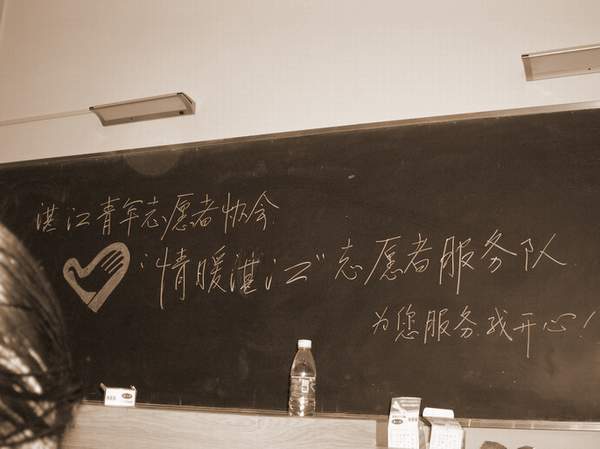 湛江青年志愿者协会
"情暖湛江"志愿者服务队
为您服务我开心！